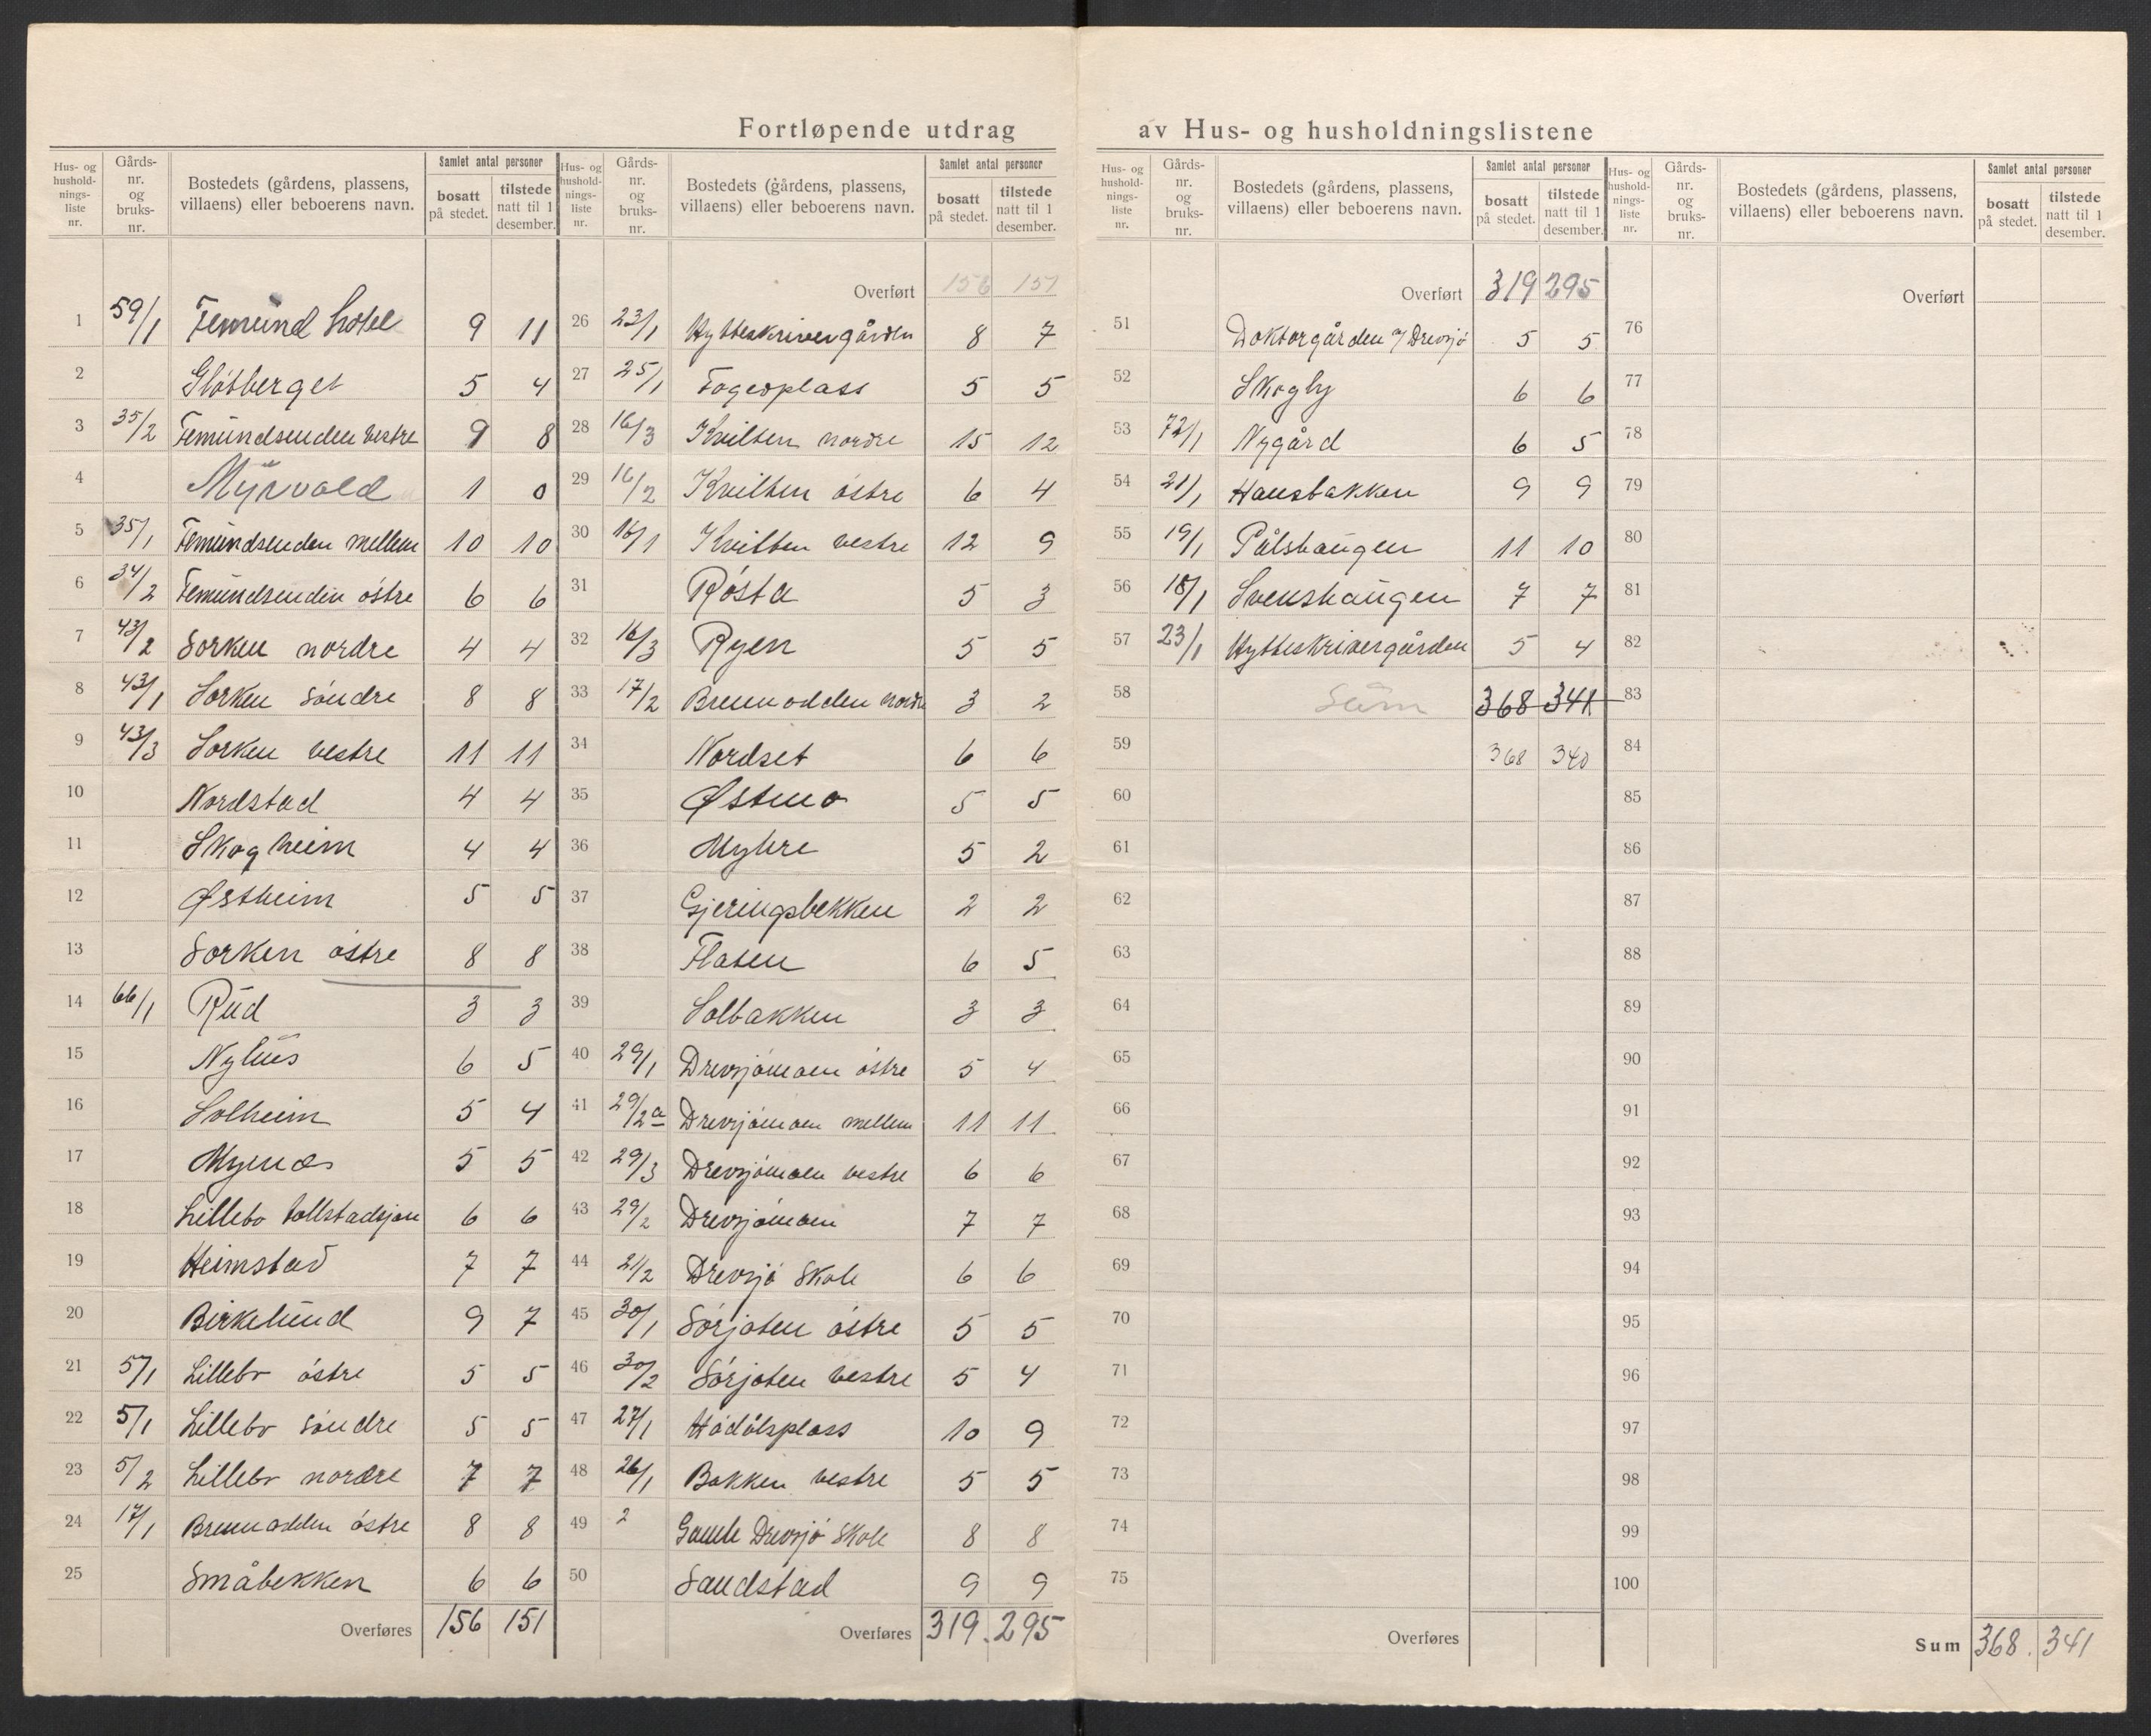 Fortløpende utdrag av Hus- og husholdningslistene
Hus- og hushold-nings-liste nr. | Gårds-nr. og bruks-nr. | Bostedets (gårdens, plassens, villaens) eller beboerens navn. | Samlet antal personer | bosatt på stedet. | tilstede natt til 1 desember.
1 59/1 Femund hotel 9 11
2 Gløtberget 5 4
3 35/2 Femundsenden vestre 9 8
4 Myrvold 1 0
5 35/1 Femundsenden mellem 10 10
6 34/2 Femundsenden østre 6 6
7 43/2 Sorken nordre 4 4
8 43/1 Sorken søndre 8 8
9 43/3 Sorken vestre 11 11
10 Nordstad 4 4
11 Skogheim 4 4
12 Østheim 5 5
13 Sorken østre 8 8
14 66/1 Rud 3 3
15 Nyhus 6 5
16 Solheim 5 4
17 Myrmo 5 5
18 Lillebo 6 6
19 Heimstad 7 7
20 Birkelund 9 7
21 5/1 Lillebo østre 5 5
22 5/1 Lillebo søndre 5 5
23 5/2 Lillebo nordre 7 7
24 17/1 Brennodden østre 8 8
25 Småbekken 6 6
Overføres 156 151
Hus- og hushold-nings-liste nr. | Gårds-nr. og bruks-nr. | Bostedets (gårdens, plassens, villaens) eller beboerens navn. | Samlet antal personer | bosatt på stedet. | tilstede natt til 1 desember.
Overført 156 151
26 23/1 Hytteskrivergården 8 7
27 25/1 Fogedplass 5 5
28 16/3 Kvilten nordre 15 12
29 16/2 Kvilten østre 6 4
30 16/1 Kvilten vestre 12 9
31 Røsta 5 3
32 16/3 Ryen 5 5
33 17/2 Brennodden nordre 3 2
34 Nordset 6 6
35 Østmo 5 5
36 Myhre 5 2
37 Gjeringsbekken 2 2
38 Flaten 6 5
39 Solbakken 3 3
40 29/1 Drevsjømoen østre 5 4
41 29/2a Drevsjømoen mellem 11 11
42 29/3 Drevsjømoen vestre 6 6
43 29/2 Drevsjømoen 7 7
44 21/2 Drevsjø Skole 6 6
45 30/1 Sørjoten østre 5 5
46 30/2 Sørjoten vestre 5 4
47 27/1 Hådålsplass 10 9
48 26/1 Bakken vestre 5 5
49 2 Gamle Drevsjø Skole 8 8
50 Sandstad 9 9
Overføres 319. 295
Hus- og hushold-nings-liste nr. | Gårds-nr. og bruks-nr. | Bostedets (gårdens, plassens, villaens) eller beboerens navn. | Samlet antal personer | bosatt på stedet. | tilstede natt til 1 desember.
Overført 319 295
51 Doktorgården Drevsjø 5 5
52 Skogly 6 6
53 72/1 Nygård 6 5
54 21/1 Hansbakken 9 9
55 19/1 Pålshaugen 11 10
56 18/1 Svenshaugen 7 7
57 23/1 Hytteskrivergården 5 4
58 Sum 368 341
59 368 340
60
61
62
63
64
65
66
67
68
69
70
71
72
73
74
75
Overføres
Hus- og hushold-nings-liste nr. | Gårds-nr. og bruks-nr. | Bostedets (gårdens, plassens, villaens) eller beboerens navn. | Samlet antal personer | bosatt på stedet. | tilstede natt til 1 desember.
Overført
76
77
78
79
80
81
82
83
84
85
86
87
88
89
90
91
92
93
94
95
96
97
98
99
100
Sum 368. 341